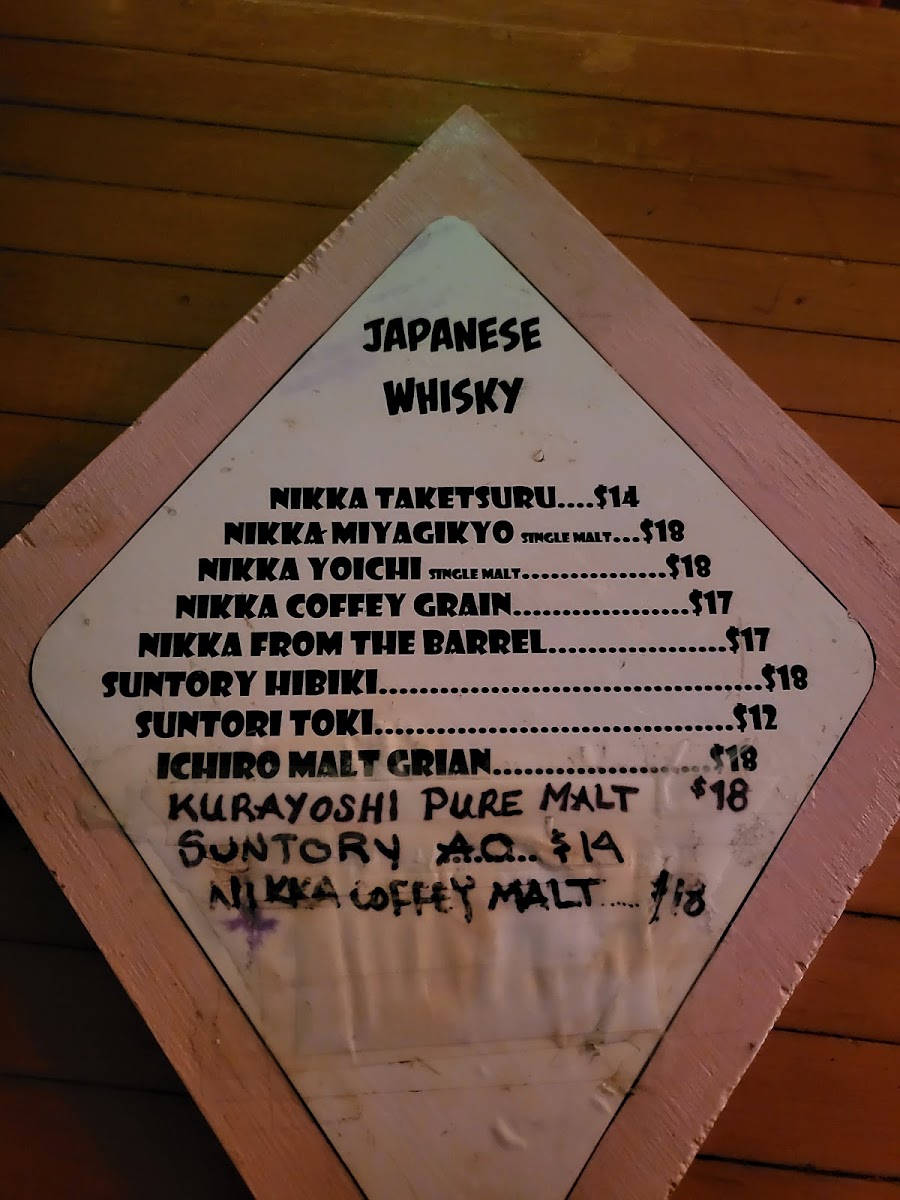 JAPANESE
WHISKY
NIKKA TAKETSURU....$14
NIKKA MIYAGIKYO SINGLE MALT...$18
NIKKA YOICHI SINGLE MALT................$18
NIKKA COFFEY GRAIN...................$17
NIKKA FROM THE BARREL...................$17
SUNTORY HIBIKI.........................................$18
SUNTORI TOKI.......................................$12
ICHIRO MALT GRIAN.......................$18
KURAYOSHI PURE MALT $18
SUNTORY A.O.. $14
NIKKA COFFEY MALT..... $18